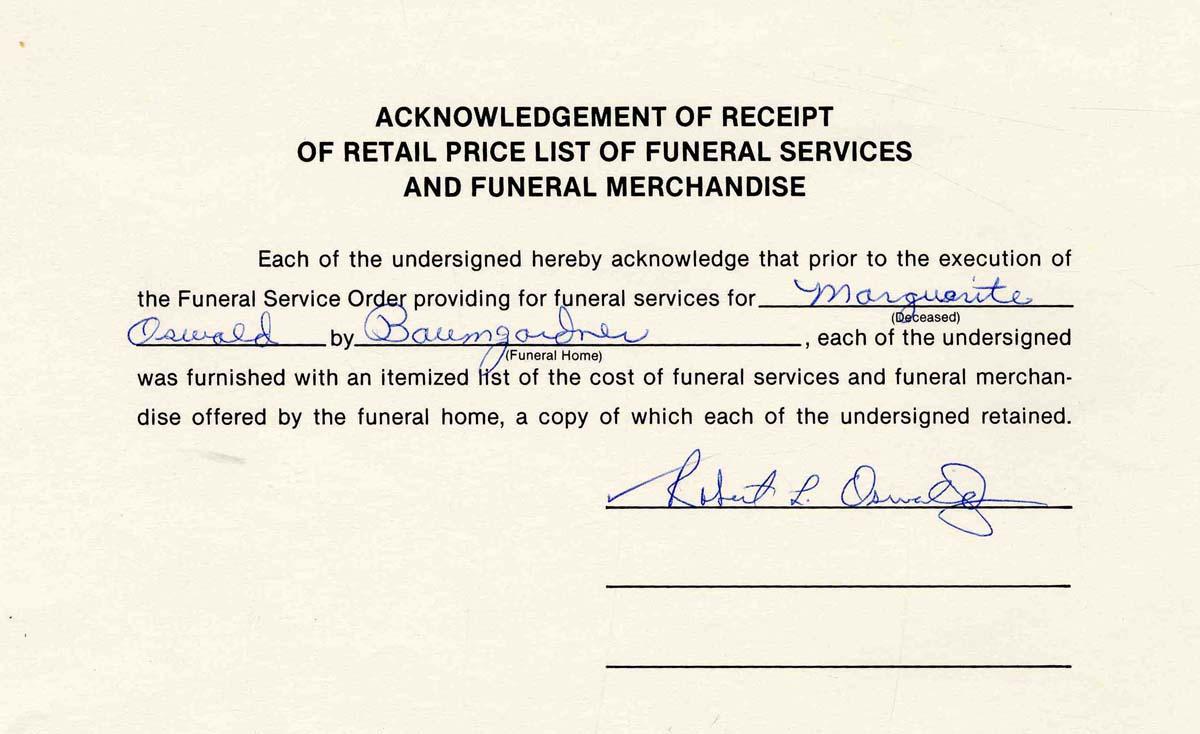 ACKNOWLEDGEMENT OF RECEIPT
OF RETAIL PRICE LIST OF FUNERAL SERVICES
AND FUNERAL MERCHANDISE
Each of the undersigned hereby acknowledge that prior to the execution of
the Funeral Service Order providing for funeral services for Marguerite
(Deceased)
Oswald by Baumgardner, each of the undersigned
(Funeral Home)
was furnished with an itemized list of the cost of funeral services and funeral merchan-
dise offered by the funeral home, a copy of which each of the undersigned retained.
Robert L. Oswald